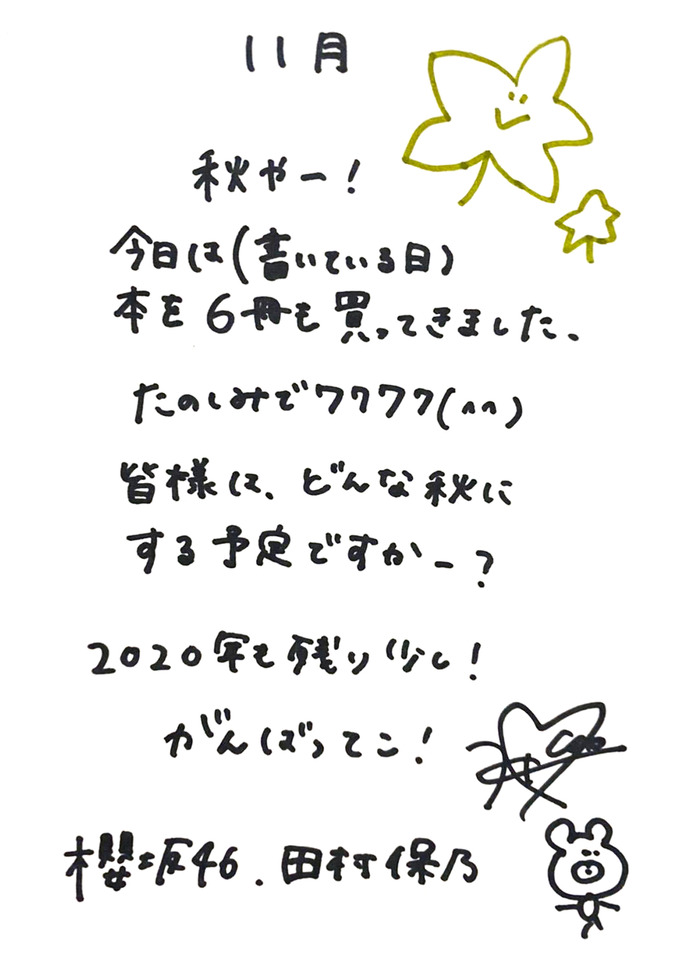 11月
秋やー!
今日は(書いている日)
本を6冊も買ってきました。
たのしみでワクワク(^^)
皆様は、どんな秋に
する予定ですかー?
2020年も残り少し!
がんばってこ!
櫻坂46.田村保乃